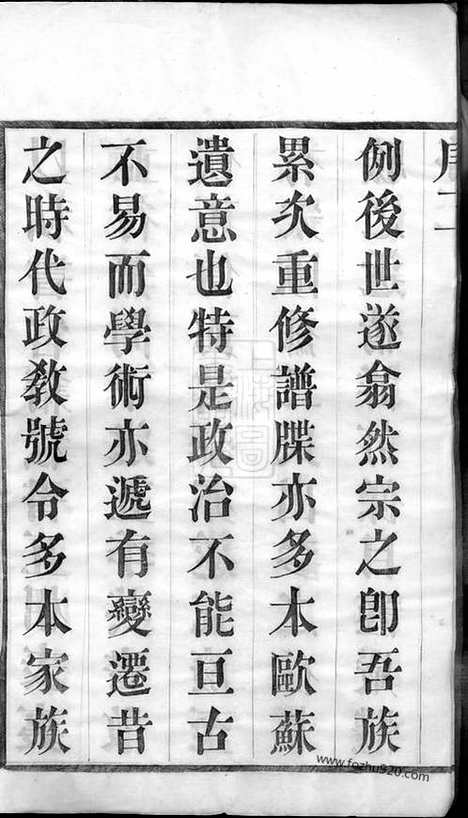 例後世遂翕然宗之卽吾族
累次重修譜牒亦多本歐蘇
遺意也特是政治不能亘古
不易而學術亦遞有變遷昔
之時代政敎號令多本家族
www.fozhu920.com